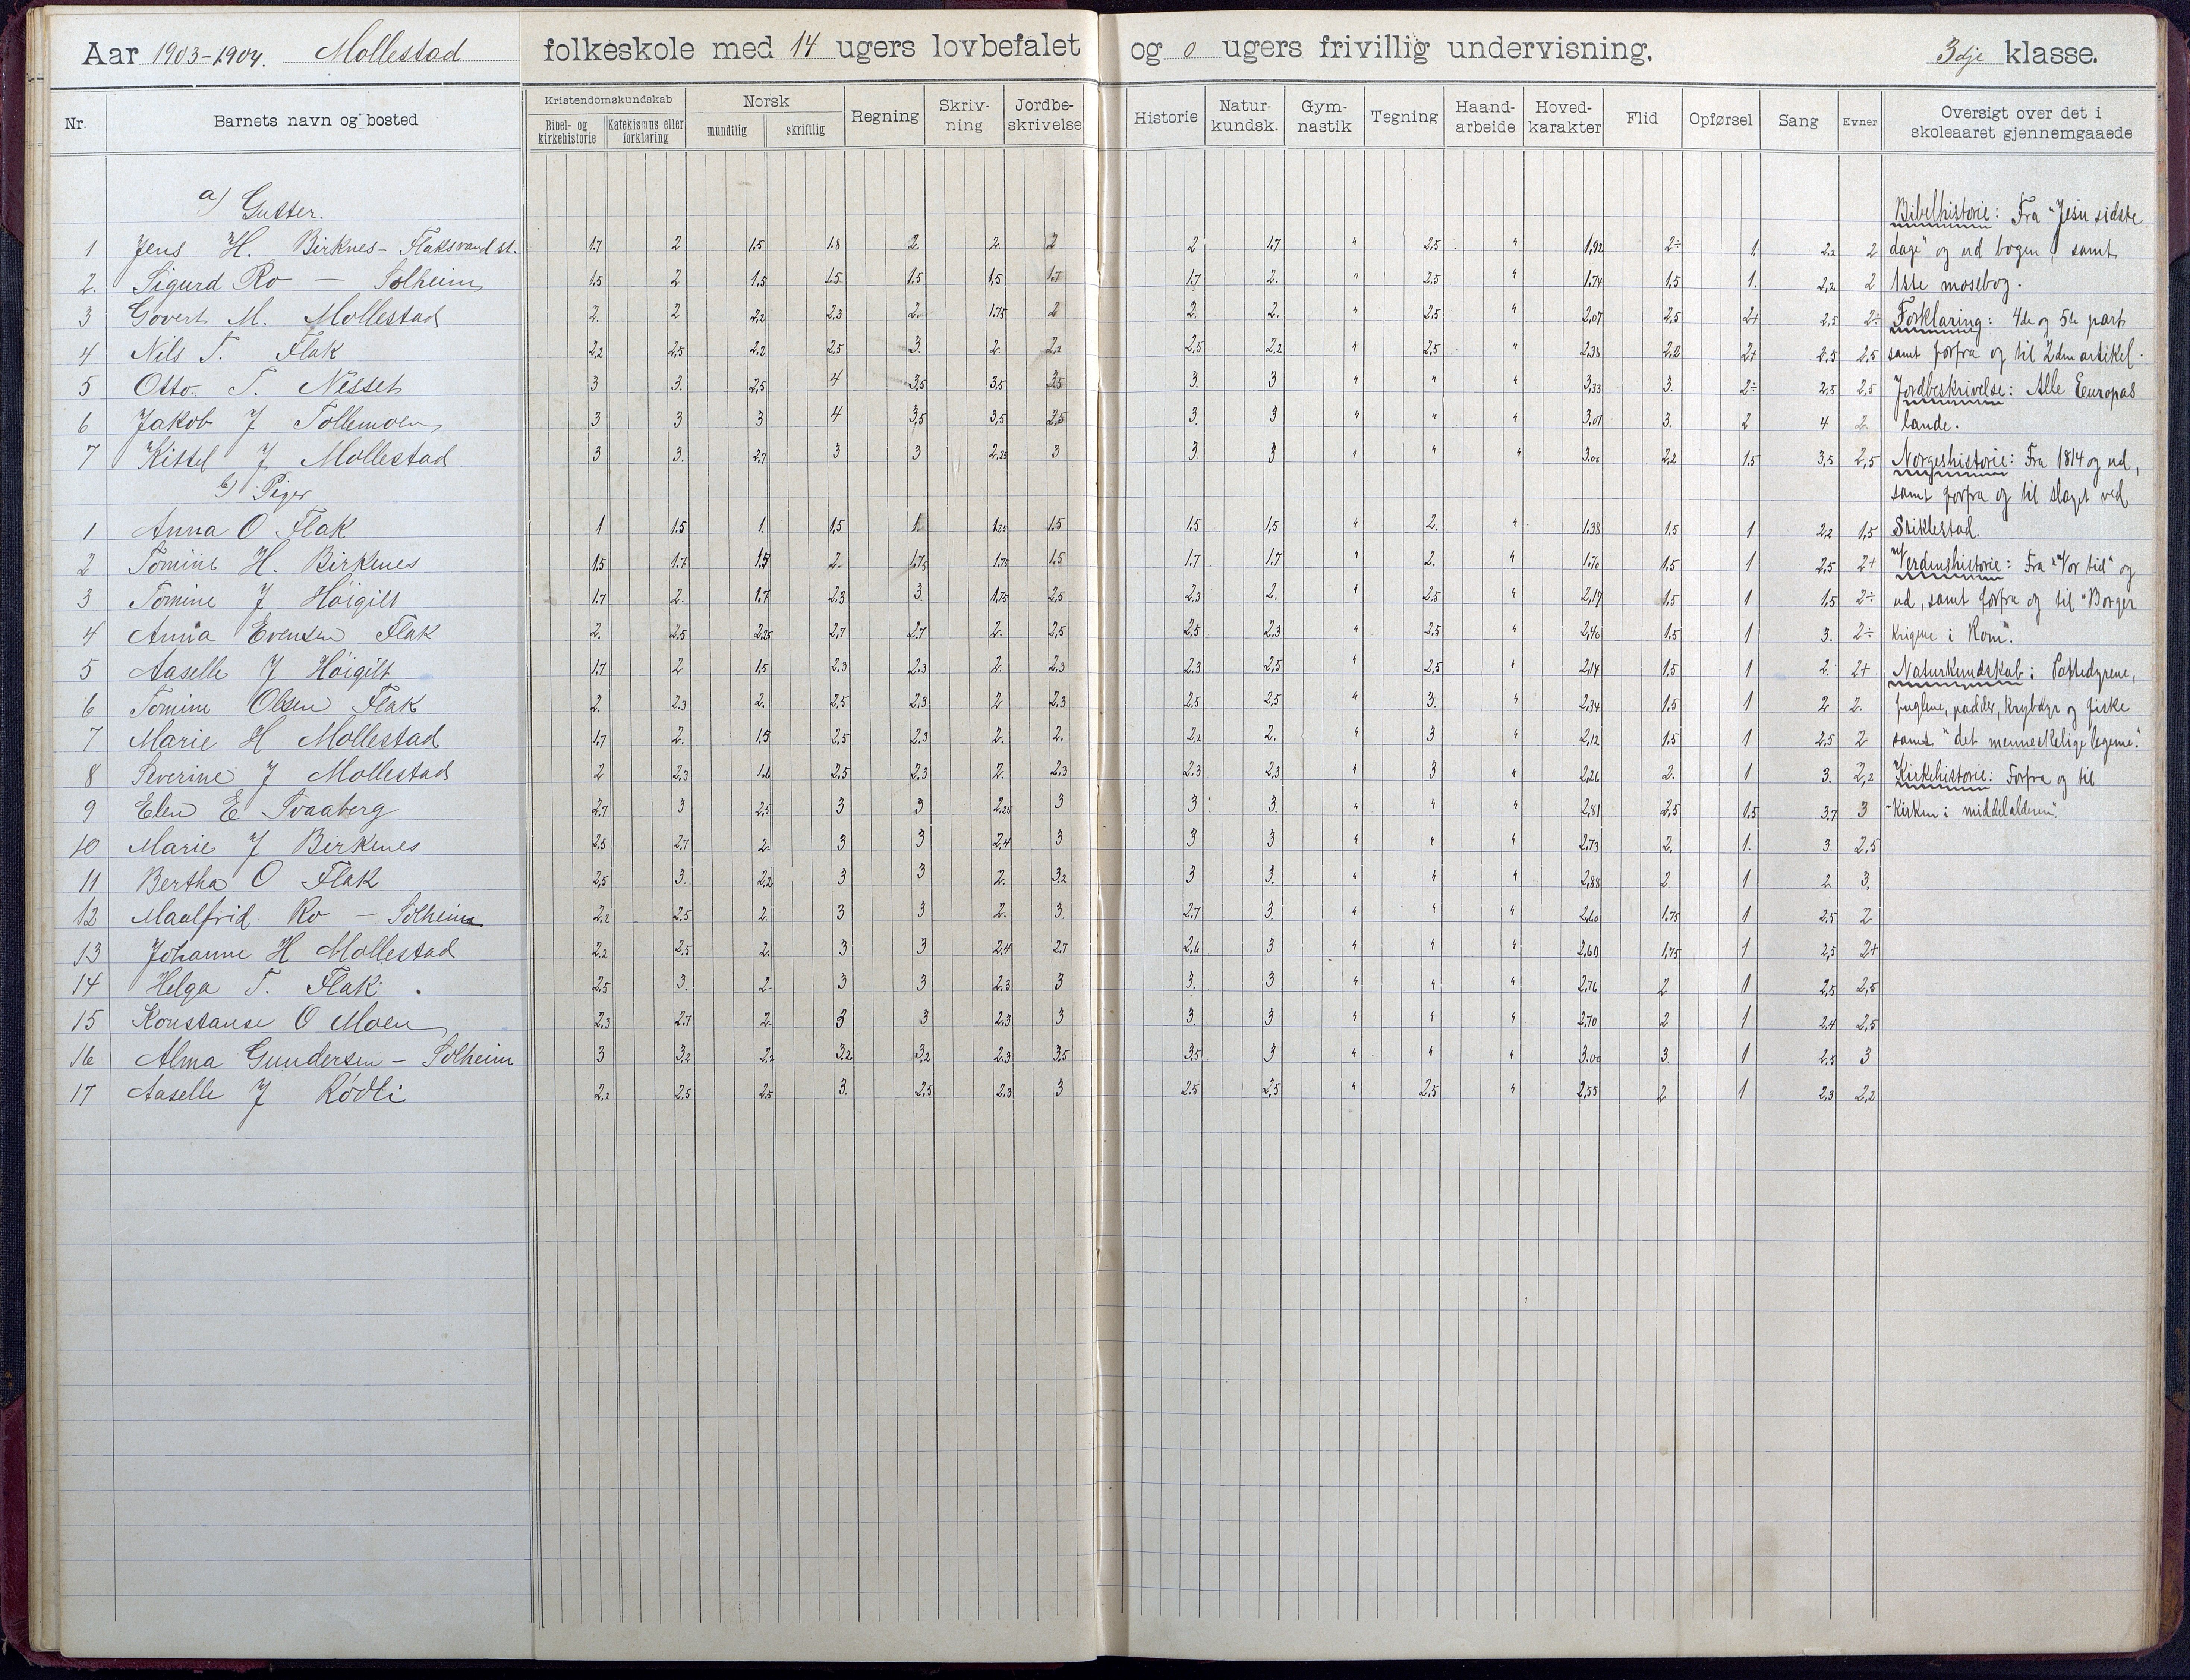 Aar 1903-1904. Mollestad folkeskole med 14 ugers lovbefalet og 0 ugers frivillig undervisning. 3dje klasse.
Nr. Barnets navn og bosted Kristendomskundskab Bibel- og kirkehistorie Katekismus eller forklaring Norsk mundtlig skriftlig Regning Skriv-ning Jordbe-skrivelse Historie Natur-kundsk. Gym-nastik Tegning Haand-arbeide Hoved-karakter Flid Opførsel Sang Evner Oversigt over det i skoleaaret gjennemgaaede
a) Gutter. Bibelhistorie: Fra "Jesu sidste
1 Jens H. Birknes - Flaksvand st. 1.7 2 1.5 1.8 2. 2. 2 2 1.7 " 2.5 " 1,92 2÷ 1. 2,2 2 dage" og ud bogen, samt
2. Sigurd Ro - Solheim 1.5 2 1.5 1.5 1.5 1,5 1.7 1.7 2. " 2.5 " 1.74 1,5 1. 2,2 2 1ste mosebog.
3 Govert M. Mollestad 2. 2 2,2 2,3 2. 1.75 2 2. 2. " 2.5 " 2,07 2,5 2+ 2,5 2÷ Forklaring: 4de og 5te part
4 Nils T. Flak 2,2 2,5 2.2 2,5 3. 2. 2,2 2,5 2,2 " 2,5 " 2,38 2,2 2+ 2.5 2,5 samt forfra og til 2den artikel.
5 Otto. T. Nesset 3 3. 2,5 4 3,5 3,5 3,5 3. 3 " " " 3,33 3. 2÷ 2,5 2,5 Jordbeskrivelse: Alle Europas
6 Jakob J Tollemoen 3 3 3 4 3,5 3,5 2,5 3. 3 " " " 3,01 3. 2 4 2. lande.
7 Kittel J Mollestad 3 3. 2,7 3 3 2.25 3 3. 3 " " " 3.00 2.2 1.5 3,5 2,5 Norgeshistorie: Fra 1814 og ud,
b) Piger samt forfra og til slaget ved
1 Anna O Flak 1 1.5 1. 1,5 1. 1,25 1.5 1.5 1,5 " 2. " 1.38 1.5 1 2,2 1,5 Stiklestad.
2 Tomine H. Birkenes 1,5 1.7 1.5 2. 1.75 1.75 1.5 1.7 1.7 " 2. " 1.70 1.5 1 2.5 2+ Verdenshistorie: Fra "Vor tid" og
3 Tomine J Høigilt 1.7 2. 1.7 2.3 3. 1.75 2,5 2.3 2. " 2.5 " 2,17 1.5 1 1.5 2÷ ud, samt forfra og til "Borger
4 Anna Evensen Flak 2. 2.5 2.25 2,7 2.7 2. 2,5 2.5 2.3 " 2.5 " 2,40 1.5 1 3. 2÷ krigene i Rom".
5 Aaselle J Høigilt 1.7 2 1.5 2.3 2.3 2. 2.3 2.3 2,5 " 2,5 " 2,14 1.5 1 2. 2+ Naturkundskab: Pattedyrene,
6 Tomine Olsen Flak 2. 2.3 2. 2,5 2,3 2 2,3 2.5 2,5 " 3. " 2,34 1.5 1 2 2. fuglene, padder, krybdyr og fiske
7 Marie H Mollestad 1.7 2. 1.5 2,5 2.3 2. 2. 2,2 2. " 3 " 2,12 1.5 1 2,5 2 samt "det menneskelige legeme."
8 Severine J Mollestad 2 2,3 1.6 2,5 2,3 2. 2.3 2.3 2,3 " 3 " 2,26 2. 1 3. 2,2 Kirkehistorie: Forfra og til
9 Elen E Svaaberg 2,7 3 2,5 3 3 2,25 3 3 3. " " " 2,81 2,5 1.5 3.7 3 "Kirken i middelalderen".
10 Marie J Birkenes 2,5 2,7 2. 3 3 2,4 3 3 3 " " " 2,73 2. 1. 3. 2,5
11 Bertha O Flak 2,5 3. 2,2 3 3 2. 3,2 3 3. " " " 2,88 2 1 2. 3.
12 Maalfrid Ro - Solheim 2,2 2.5 2. 3 3 2. 3. 2.7 3. " " " 2,60 1,75 1 2.5 2
13 Johanne H Mollestad 2,2 2,5 2. 3 3 2,4 2.7 2,6 3 " " " 2,60 1,75 1 2,5 2+
14 Helga T. Flak. 2.5 3. 2. 3 3 2.3 3 3. 3 " " " 2,76 2 1 2,5 2,5
15 Konstanse O Moen 2,3 2.7 2. 3 3 2,3 3 3. 3 " " " 2,70 2 1 2,4 2,5
16 Alma Gundersen - Solheim 3 3,2 2,2 3,2 3,2 2.3 3.5 3.5 3 " " " 3.00 3. 1 2.5 3
17 Aaselle J Rødli 2,2 2.5 2.5 3. 2,5 2,3 3 2.5 2,5 " 2,5 " 2,55 2 1 2,3 2,2